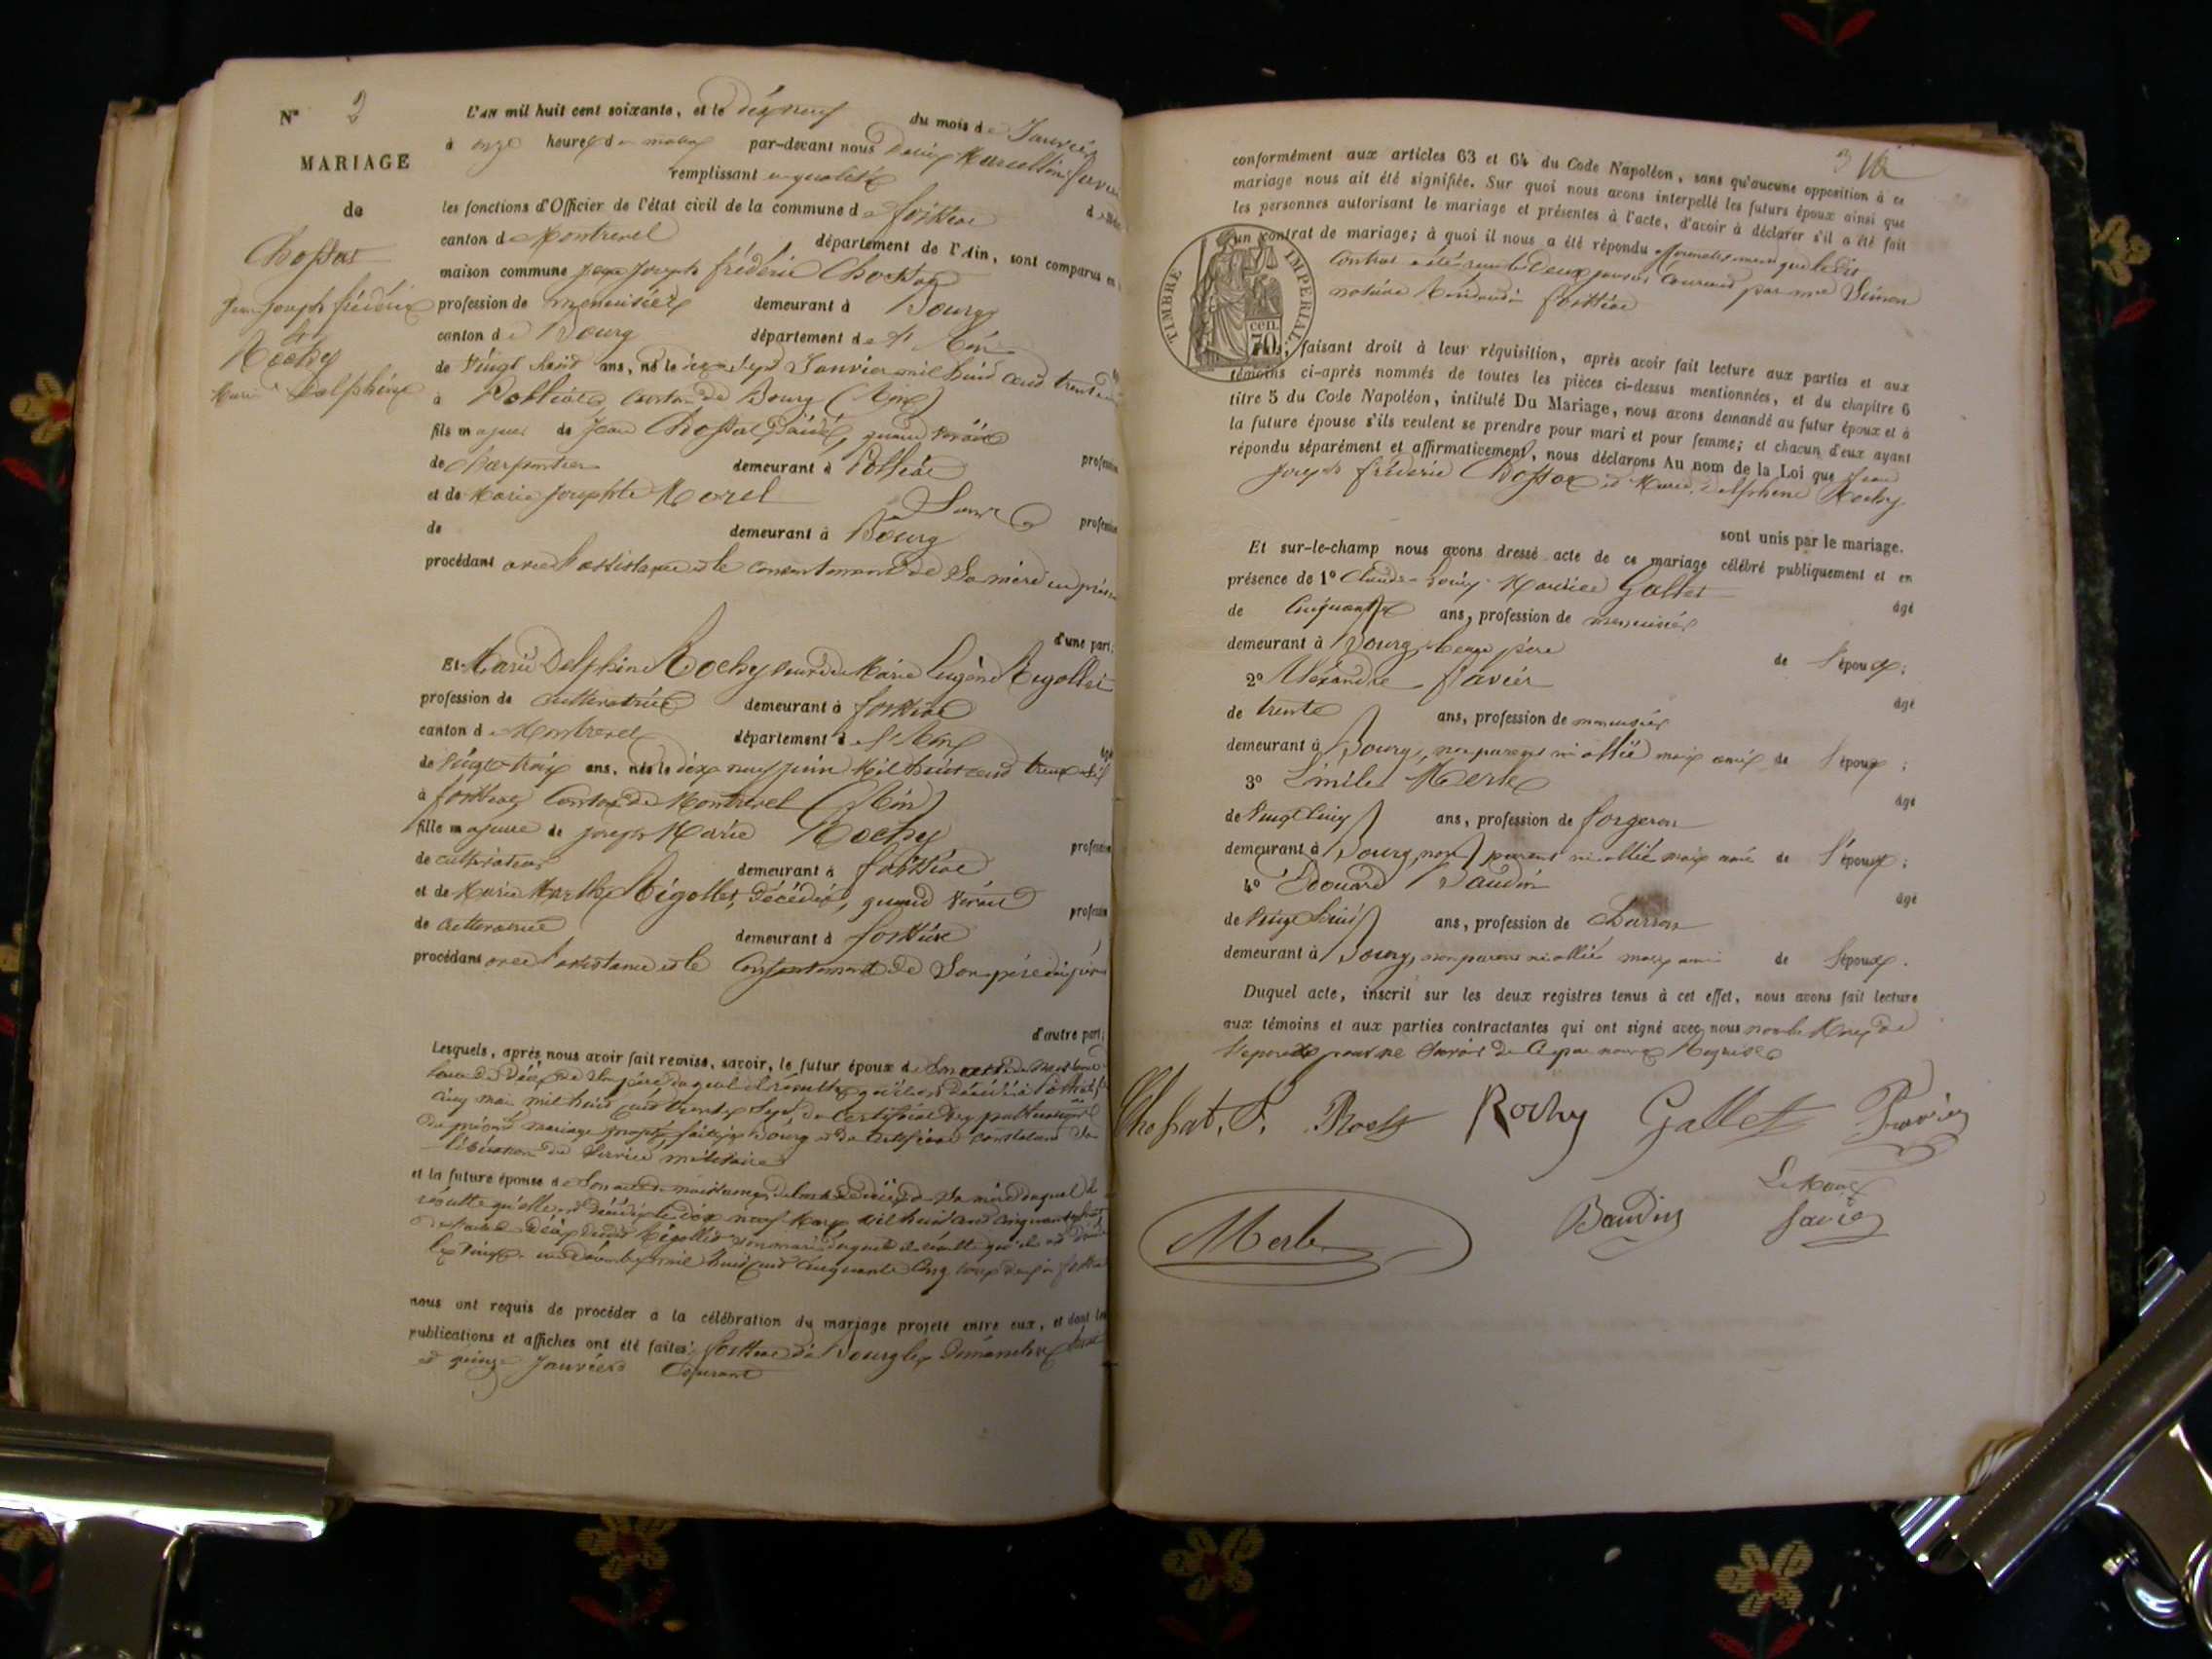 N° 2
MARIAGE
de
Chossat
Jean Joseph frédéric
et
Rochy
Marie Delphine
L'an mil huit cent soixante, et le dix neuf du mois de Janvier
à onze heures du matin par-devant nous Marcellin favier
remplissant en qualité
les fonctions d'Officier de l'état civil de la commune de foissiat
canton de Montrevel département de l'Ain, sont comparus en
maison commune Jean Joseph frédéric Chossat
profession de menuisier demeurant à Bourg
canton de Bourg département de l'Ain
de vingt huit ans, né le dix sept Janvier mil huit cent trente
à Polliat canton de Bourg (Ain)
fils majeur de Jean Chossat décédé, quand vivait
profession
de charpentier demeurant à Polliat
et de Marie Josephte Morel
profession
de demeurant à Bourg
procédant avec l'assistance et le consentement de Sa mère
d'une part;
Et Marie Delphine Rochy veuve de Marie Eugène Rigollet
profession de cultivatrice demeurant à foissiat
canton de Montrevel département de l'Ain
de vingt trois ans, née le dix neuf juin mil huit cent trente six
à foissiat Canton de Montrevel (Ain)
fille majeure de joseph Marie Rochy
profession
de cultivateur demeurant à foissiat
et de Marie Marthe Rigollet, décédée, quand vivait
profession
de cultivatrice demeurant à foissiat
procédant avec l'assistance et le Consentement de Son père
d'autre part;
Lesquels, après nous avoir fait remise, savoir, le futur époux de Son acte de naissance
de décès de Son père duquel il résulte qu'il est décédé à
cinq mai mil huit cent trente sept, du certificat des publications
du présent mariage projeté faites à Bourg et du certificat constatant Sa
libération du Service militaire
et la future épouse de Son acte de naissance, de l'acte de décès de Sa mère duquel il
résulte qu'elle est décédée le dix neuf Mars mil huit cent cinquante
de l'acte de décès dudit Rigollet son mari duquel il résulte qu'il est décédé
le vingt un décembre mil huit cent cinquante cinq
nous ont requis de procéder à la célébration du mariage projeté entre eux, et dont les
publications et affiches ont été faites à foissiat et à Bourg les Dimanches huit
et quinze Janvier Courant
conformément aux articles 63 et 64 du Code Napoléon, sans qu'aucune opposition à ce
mariage nous ait été signifiée. Sur quoi nous avons interpellé les futurs époux ainsi que
les personnes autorisant le mariage et présentes à l'acte, d'avoir à déclarer s'il a été fait
un contrat de mariage; à quoi il nous a été répondu affirmativement que ledit
Contrat a été reçu le Deux janvier Courant par me
notaire à foissiat
TIMBRE IMPERIAL
70 cen.
faisant droit à leur réquisition, après avoir fait lecture aux parties et aux
témoins ci-après nommés de toutes les pièces ci-dessus mentionnées, et du chapitre 6
titre 5 du Code Napoléon, intitulé Du Mariage, nous avons demandé au futur époux et à
la future épouse s'ils veulent se prendre pour mari et pour femme; et chacun d'eux ayant
répondu séparément et affirmativement, nous déclarons Au nom de la Loi que Jean
Joseph frédéric Chossat et Marie Delphine Rochy
sont unis par le mariage.
Et sur-le-champ nous avons dressé acte de ce mariage célébré publiquement et en
présence de 1° Claude Louis Maurice Gallet
âgé
de Cinquante ans, profession de menuisier
demeurant à Bourg, beau père de l'époux;
2° Alexandre favier
âgé
de trente ans, profession de menuisier
demeurant à Bourg, non parent ni allié mais ami de l'époux;
3° Emile Merle
âgé
de Vingt Cinq ans, profession de forgeron
demeurant à Bourg, non parent ni allié mais ami de l'époux;
4° Edouard Baudin
âgé
de Vingt huit ans, profession de Charron
demeurant à Bourg, non parent ni allié mais ami de l'époux.
Duquel acte, inscrit sur les deux registres tenus à cet effet, nous avons fait lecture
aux témoins et aux parties contractantes qui ont signé avec nous non la Mère de
l'époux pour ne Savoir de Ce par nous Requise
Chossat. f. Rochy Rochy Gallet Favier
Merle Baudin Le Maire
favier